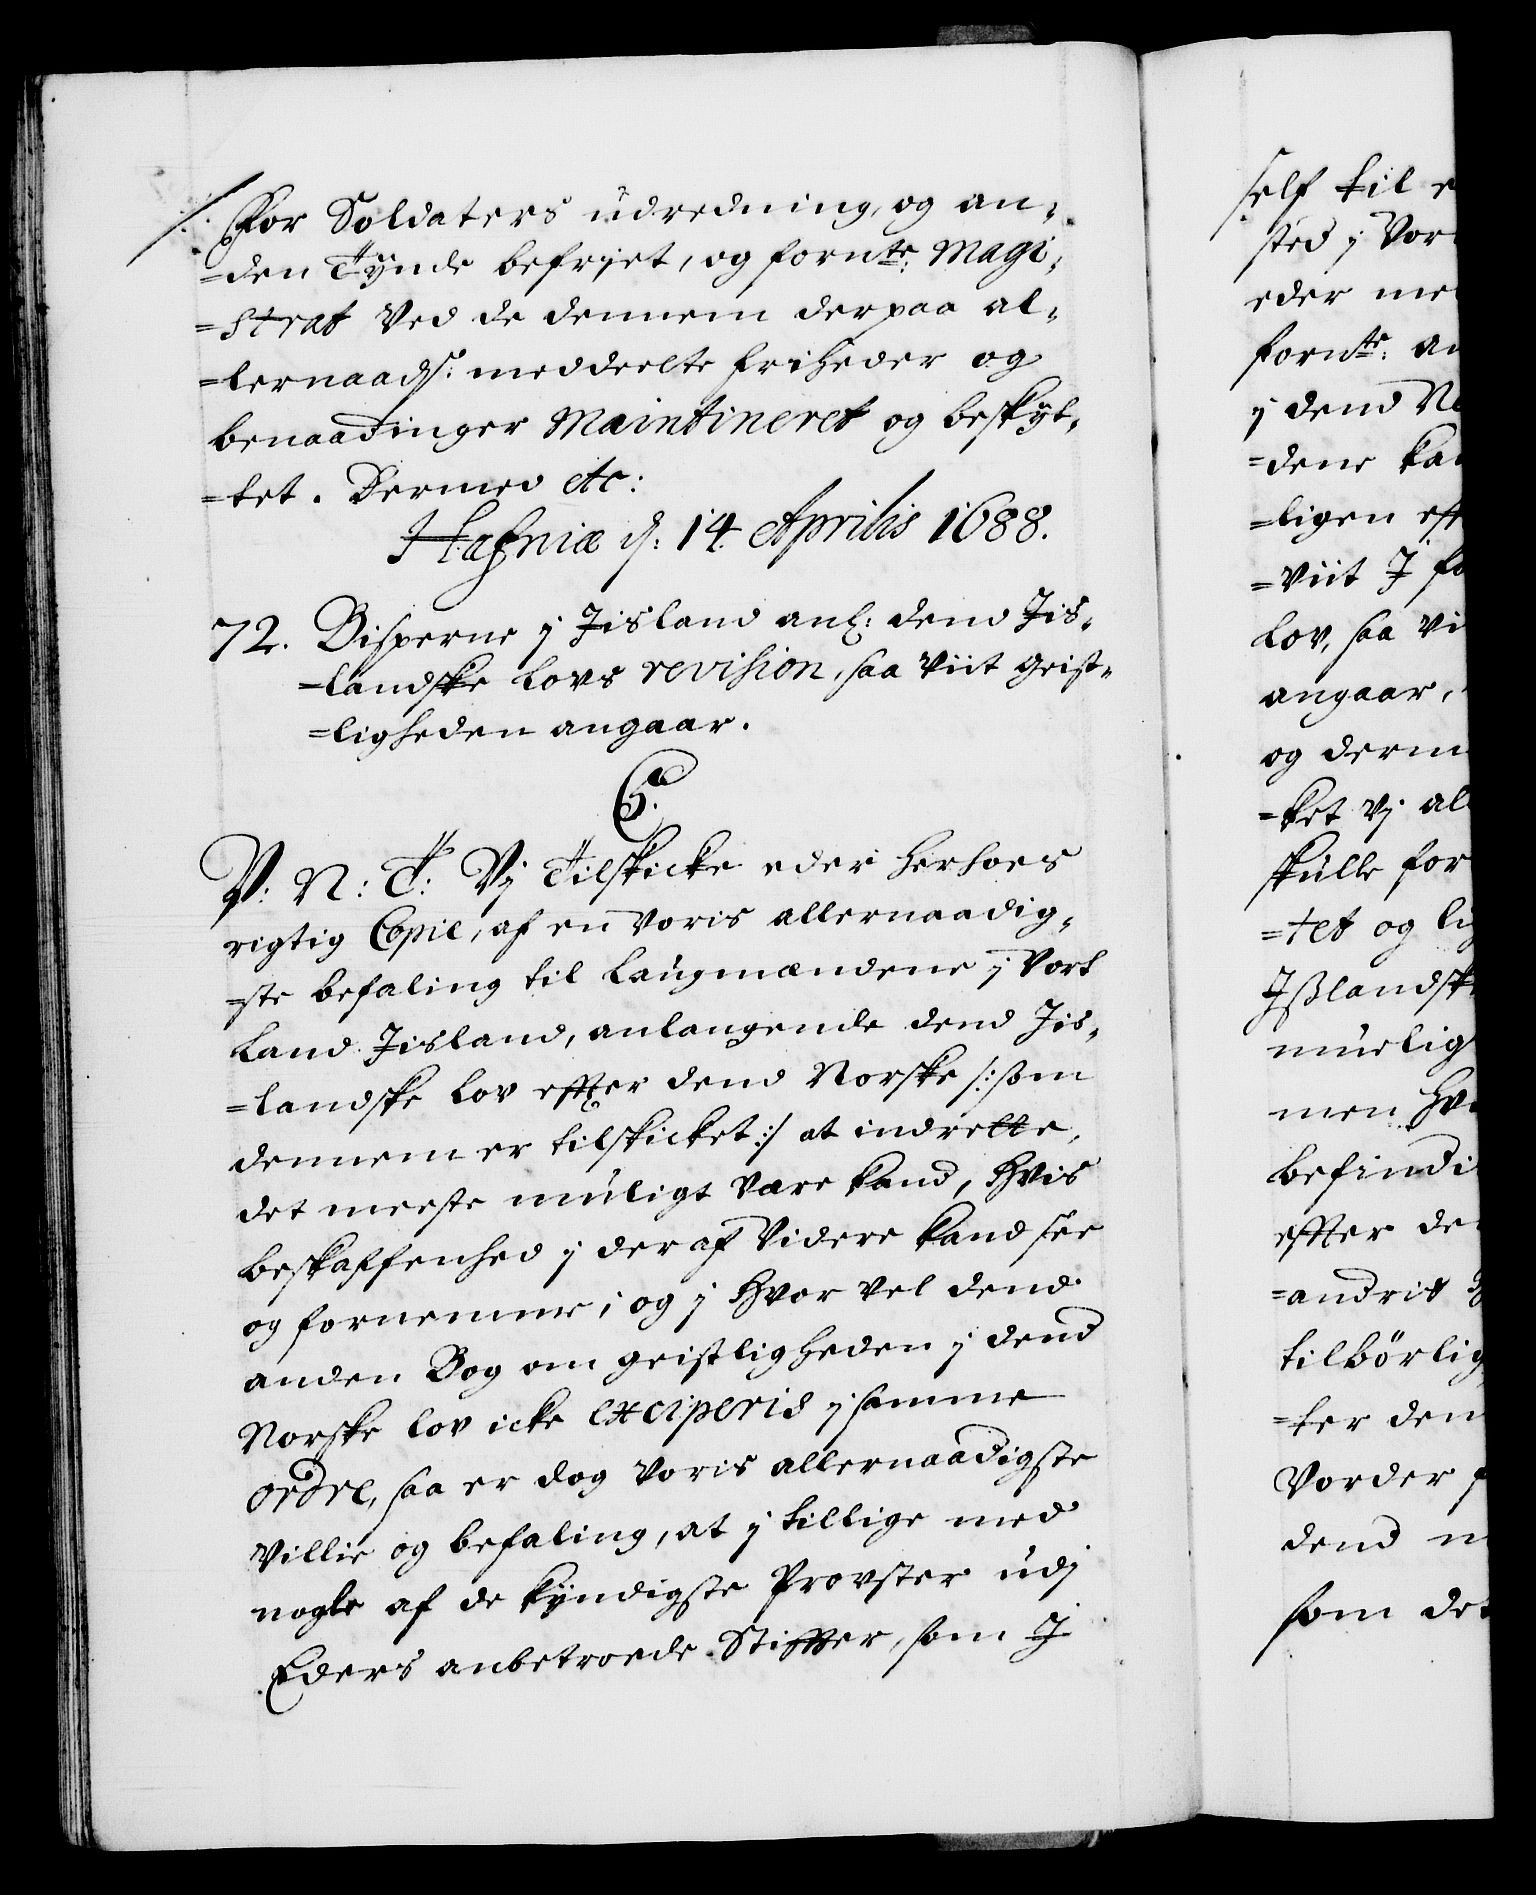 for Soldaters udredning, og an-
=den Tynde befriet, og fornte: Magi-
=strat Ved de dennem derpaa al-
=lernaads: meddeelte friheder og
benaadinger Maintineret og beskyt-
=tet. Dermed etc:
Hafniæ d: 14. Aprilis 1688.
72. Bisperne j Jisland anl: dend Jis-
=landske Lovs revision, saa Viit geist-
=ligheden angaar.
C5.
V: N: T: Vj Tilskicke eder herhoes
rigtig Copie, af en Voris allernaadig-
=ste befaling til Laugmændene j Vort
Land Jisland, anlangende dend Jis-
=landske Lov effter dend Norske /: som
dennem er tilskicket :/ at indrette,
det meeste muligt Være kand, hvis
beskaffenhed j der af Videre kand see
og fornemme; og j hvor vel dend
anden Bog om geistligheden j dend
Norske lov icke exciperis j samme
ordre, saa er dog Voris allernaadigste
Villie og befaling, at j tillige med
nogle af de kyndigste Provster udj
Eders anbetroede Stiffter, som J
self til
sted j Vor
eder me
fornte: an
j dend No
=dene kan
=ligen eff
=Viit J fo
Lov, saa Vi
angaar,
og derm
=ket Vj al
skulle for
=tet og lig
Jsslandsk
muelig
men hv
befindi
effter de
=andrit
tilbörlig
=ter den
Vorder f
dend n
som det